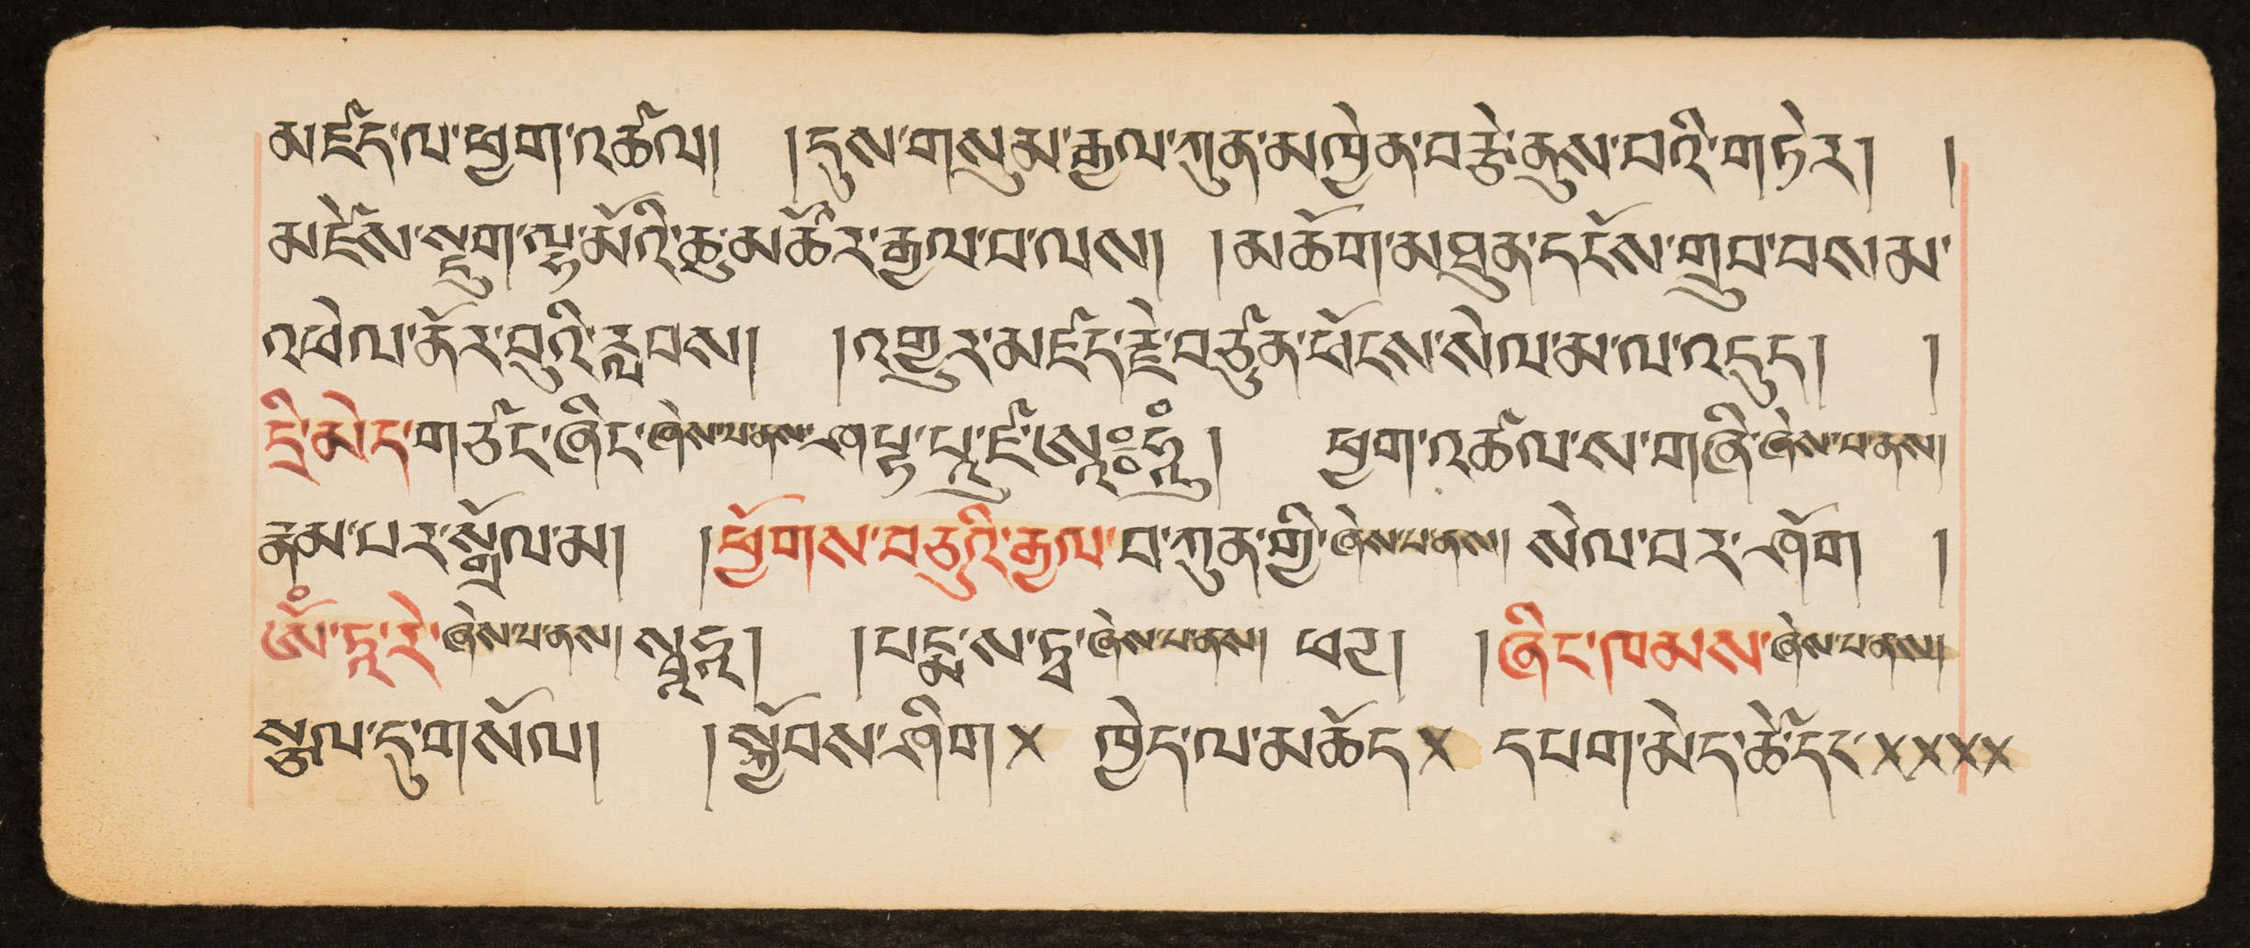 མཛོད་ལ་ཕྱག་འཚལ། །དུས་གསུམ་རྒྱལ་ཀུན་མཁྱེན་བརྩེ་ནུས་པའི་གཏེར། །
མཛེས་སྡུག་ལྷ་མོའི་ཆུ་མཚོར་རྒྱལ་བ་ལས། །མཆོག་མཐུན་དངོས་གྲུབ་བསམ་
འཕེལ་ནོར་བུའི་རླབས། །འགྱུར་མཛད་རྗེ་བཙུན་ཕོངས་སེལ་མ་ལ་འདུད། །
དྲི་མེད་གཙང་ཞིང་ཞེས་པ་ནས་ཤ པུ་ཛ་ཨཱཿཧཱུྃ། ཕྱག་འཚལ་ས་གཞི་ཞེས་པ་ནས།
རྣམ་པར་སྒྲོལ་མ། །ཕྱོགས་བཅུའི་རྒྱལ་བ་ཀུན་གྱི་ཞེས་པ་ནས། སེལ་བར་ཤོག །
ཨོཾ་ཏཱ་རེ་ཞེས་པ་ནས། སྭཱཧཱ། །པདྨ་ས་ཏྭ་ཞེས་པ་ནས། ཕཊ། །ཞིང་ཁམས་ཞེས་པ་ནས།
སྩལ་དུ་གསོལ། །སྐྱོབས་ཤིག × ཁྱེད་ལ་མཆོད × དཔག་མེད་ཚེ་དང་××××